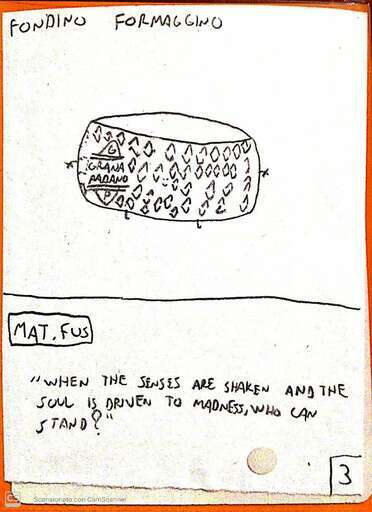 FONDINO FORMAGGINO
G
GRANA
PADANO
P
MAT. FUS
"WHEN THE SENSES ARE SHAKEN AND THE
SOUL IS DRIVEN TO MADNESS, WHO CAN
STAND?"
3
CS Scansionato con CamScanner